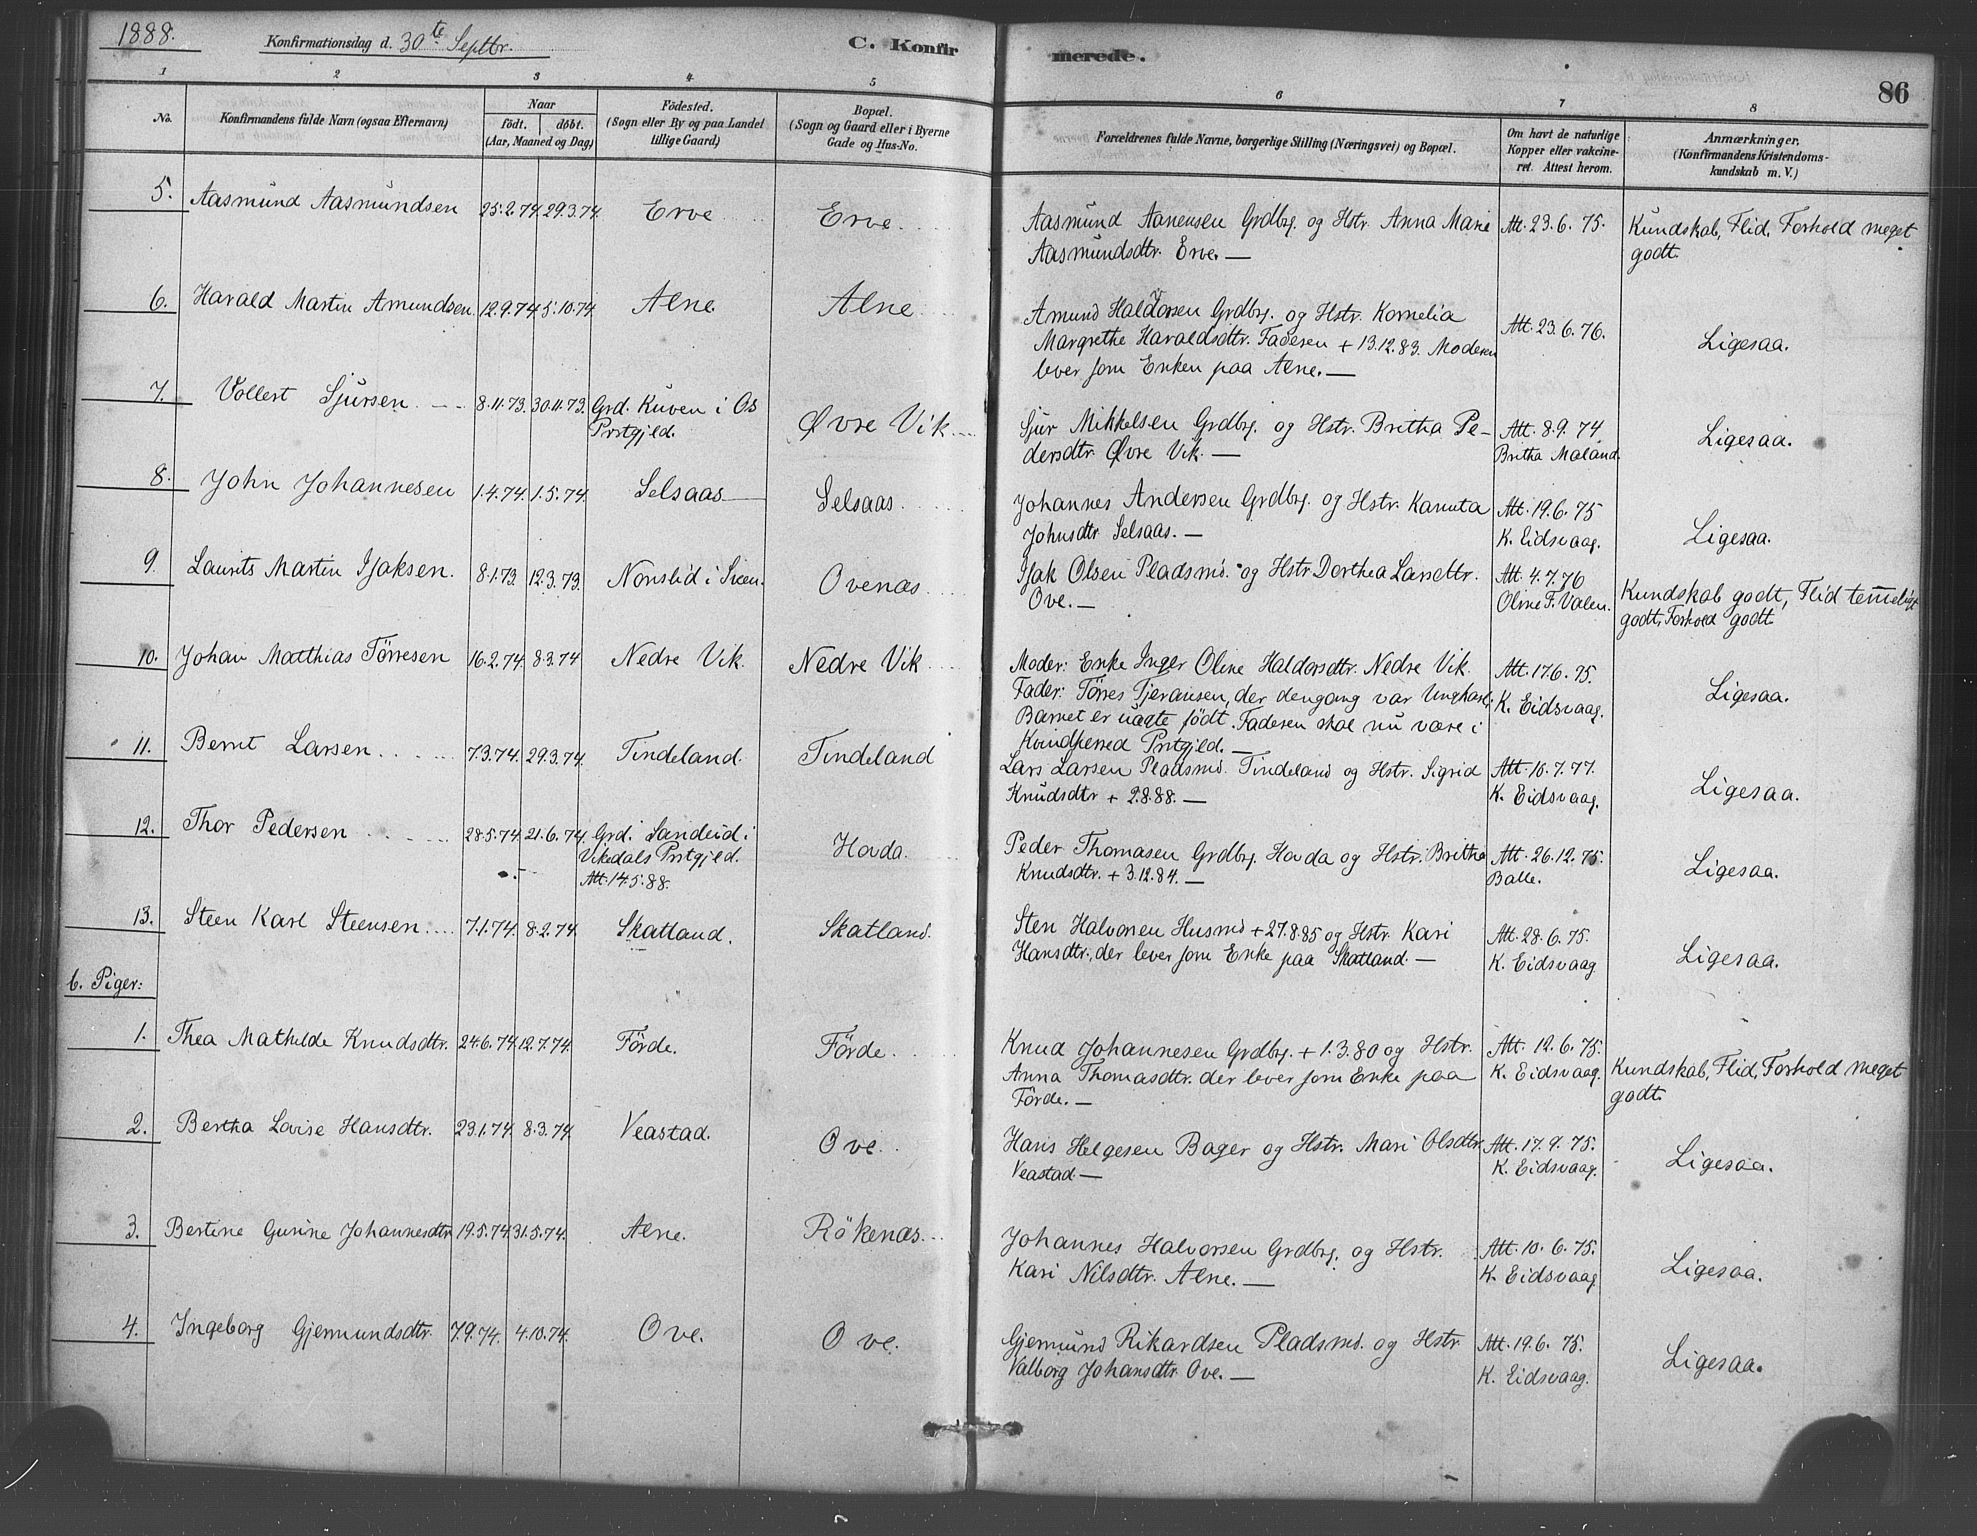 1888. Konfirmationsdag d. 30te Septbr. C. Konfirmerede. 86
1 2 3 4 5 6 7 8
No. Konfirmandens fulde Navn (ogsaa Efternavn) Naar født. døbt. (Aar, Maaned og Dag) Födested. (Sogn eller By og paa Landet tillige Gaard) Bopæl. (Sogn og Gaard eller i Byerne Gade og Hus-No. Forældrenes fulde Navne, borgerlige Stilling (Næringsvei) og Bopæl. Om havt de naturlige Kopper eller vakcineret. Attest herom. Anmærkninger. (Konfirmandens Kristendomskundskab m. V.)
5. Aasmund Aasmundsen 25.2.74 29.3.74 Erve Erve. Aasmund Aanensen Grdbrg. og Hstr. Anna Marie Att. 23.6.75. Kundskab, Flid, Forhold meget
Aasmundsdtr. Erve. — godt.
6. Harald Martin Amundsen 12.9.74 5.10.74 Alne. Alne Amund Haldorsen Grdbrg. og Hstr. Kornelia Att. 23.6.76. Ligesaa.
Margrethe Haraldsdtr. Faderen + 13.12.83. Moderen
lever som Enken paa Alne. —
7. Vollert Sjursen 8.11.73. 30.11.73. Grd. Kuven i Os Øvre Vik Sjur Mikkelsen Grdbrg. og Hstr. Britha Pe- Att. 8.9.74 Ligesaa.
Prstgjeld. dersdtr. Øvre Vik. — Britha Maland.
8. John Johannesen 1.4.74. 1.5.74. Selsaas Selsaas. Johannes Andersen Grdbrg. og Hstr. Kanuta Att. 19.6.75 Ligesaa.
Johnsdtr Selsaas. — K. Eidsvaag.
9. Laurits Martin Isaksen. 8.1.73 12.3.73. Nonslid i Sveen. Ovenæs Isak Olsen Pladsmd. og Hstr. Dorthea Larsdtr. Att. 4.7.76 Kundskab godt, Flid temmeligt
Ove. — Oline F. Valen. godt, Forhold godt.
10. Johan Matthias Törresen 16.2.74 8.3.74 Nedre Vik. Nedre Vik Moder: Enke Inger Oline Haldorsdtr. Nedre Vik. Att. 17.6.75. Ligesaa.
Fader: Törres Tjeransen, der dengang var Ungkarl, K. Eidsvaag.
Barnet er uægte födt. Faderen skal nu være i
Kvindherred Prstgjld. —
11. Bernt Larsen 7.3.74. 29.3.74. Tindeland. Tindeland Lars Larsen Pladsmd. Tindeland og Hstr. Sigrid Att. 10.7.77. Ligesaa.
Knudsdtr + 2.8.88. — K. Eidsvaag.
12. Thor Pedersen 28.5.74. 21.6.74. Grd. Sandeid i Hovda. Peder Thomasen Grdbrg. Hovda og Hstr. Britha Att. 26.12.75. Ligesaa.
Vikedals Prstgjeld. Knudsdtr. + 3.12.84. — Balle.
Att. 14.5.88.
13. Steen Karl Steensen 7.1.74. 8.2.74 Skatland. Skatland. Sten Halvorsen Husmd + 27.8.85 og Hstr. Kari Att. 28.6.75. Ligesaa.
Hansdtr., der lever som Enke paa Skatland. — K. Eidsvaag
b. Piger:
1. Thea Mathilde Knudsdtr. 24.6.74. 12.7.74. Förde. Förde. Knud Johannesen Grdbrg. + 1.3.80 og Hstr. Att. 12.6.75. Kundskab, Flid, Forhold meget
Anna Thomasdtr. der lever som Enke paa K. Eidsvaag. godt.
Förde. —
2. Bertha Lovise Hansdtr. 23.1.74. 8.3.74. Veastad. Ove. Hans Helgesen Bager og Hstr. Mari Olsdtr. Att. 17.9.75. Ligesaa.
Veastad — K. Eidsvaag.
3. Bertine Gurine Johannesdtr 19.5.74. 31.5.74. Alne. Rökenæs. Johannes Halvorsen Grdbrg. og Hstr. Att. 10.6.75. Ligesaa.
Kari Nilsdtr. Alne. — K. Eidsvaag
4. Ingeborg Gjermundsdtr. 7.9.74. 4.10.74. Ove. Ove. Gjermund Rikardsen Pladsmd. og Hstr. Att. 19.6.75. Ligesaa.
Valborg Johansdtr Ove. — K. Eidsvaag.